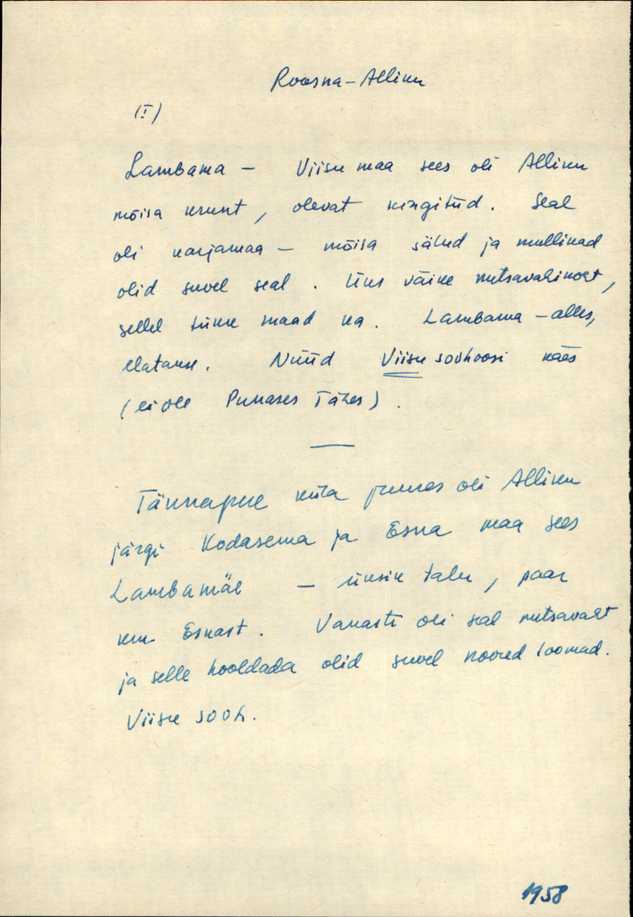 Roosna-Alliku
(I)
Lambama – Viisu maa sees oli Alliku
mõisa krunt, olevat kingitud. Seal
oli karjamaa – mõisa sälud ja mullikad
olid suvel seal. Üks väike metsavahikoht,
sellel tükk maad ka. Lambama – alles,
elatakse. Nüüd Viisu sovhoosi käes
(ei ole Punases Tähes).
Tännapere küla juures oli Alliku
järgi Kodasema ja Esna maa sees
Lambamäe – üksik talu, paar
km Esnast. Vanasti oli seal metsavaht
ja selle hooldada olid suvel noored loomad.
Viisu sovh.
1958